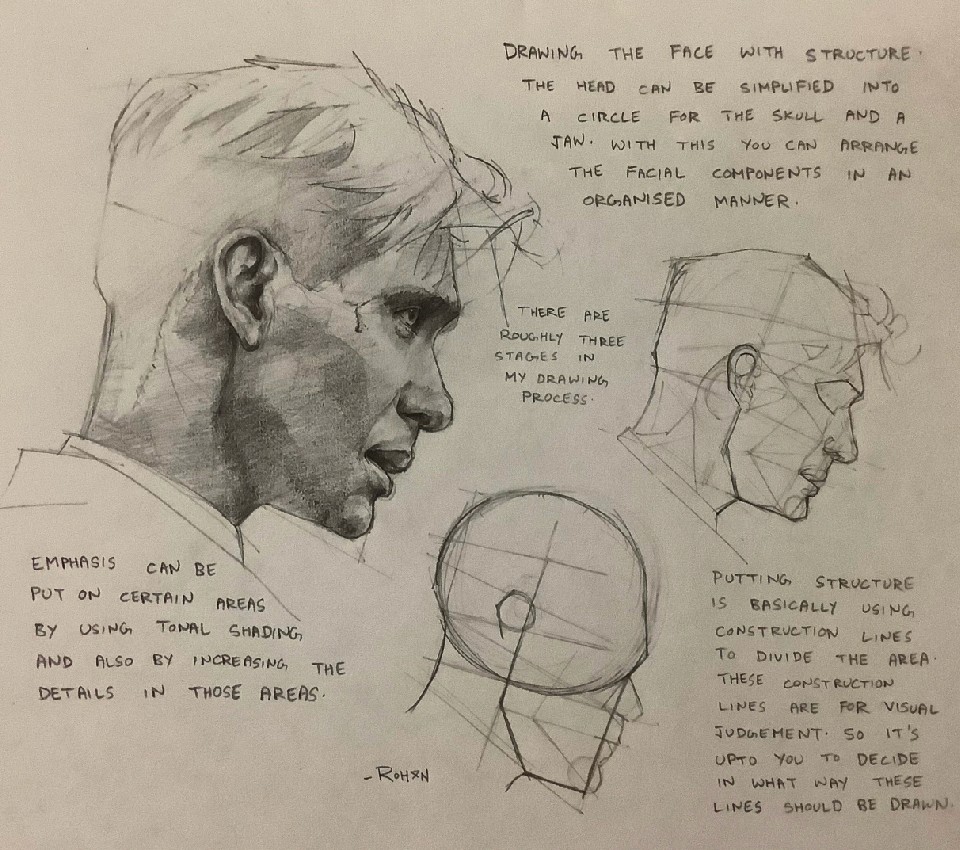 DRAWING THE FACE WITH STRUCTURE.
THE HEAD CAN BE SIMPLIFIED INTO
A CIRCLE FOR THE SKULL AND A
JAW. WITH THIS YOU CAN ARRANGE
THE FACIAL COMPONENTS IN AN
ORGANISED MANNER.
THERE ARE
ROUGHLY THREE
STAGES IN
MY DRAWING
PROCESS.
EMPHASIS CAN BE
PUT ON CERTAIN AREAS
BY USING TONAL SHADING,
AND ALSO BY INCREASING THE
DETAILS IN THOSE AREAS.
PUTTING STRUCTURE
IS BASICALLY USING
CONSTRUCTION LINES
TO DIVIDE THE AREA.
THESE CONSTRUCTION
LINES ARE FOR VISUAL
JUDGEMENT. SO IT'S
UPTO YOU TO DECIDE
IN WHAT WAY THESE
LINES SHOULD BE DRAWN.
-ROHAN